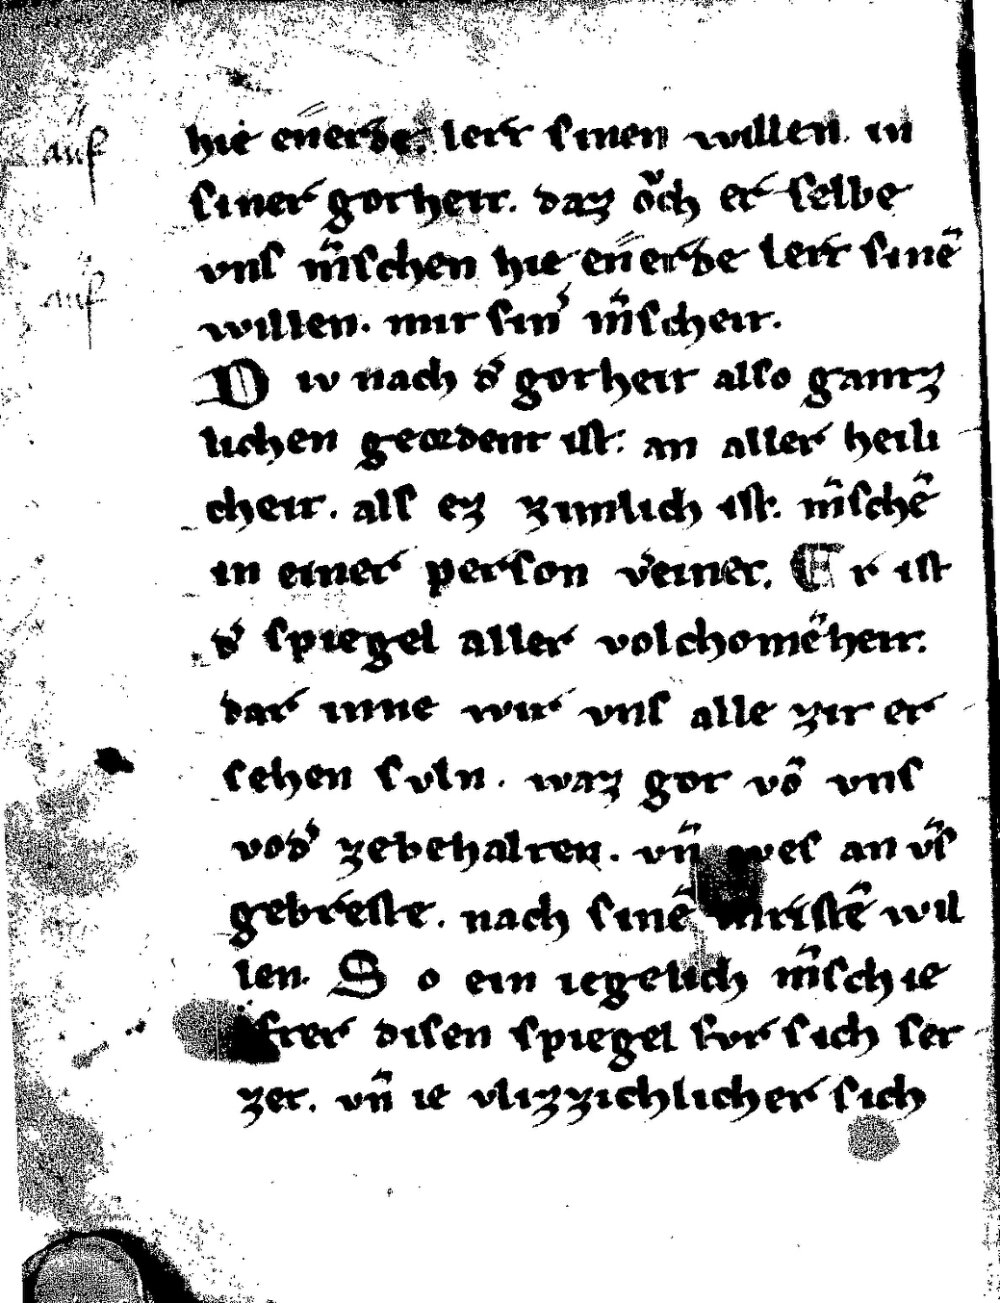 auf hie enerde. lert sinen willen. in
siner gotheit. daz oͮch er selbe
auf vns m̃schen hie enerde lert sinē
willen. mit sin' m̃scheit.
Div nach d' gotheit also gantz
lichen geordent ist: an aller heili
cheit. als ez zimlich ist. m̃schē
in einer person v'einet. Er ist
d' spiegel aller volchomēheit.
dar inne wir vns alle zit er
sehen svln. waz got vō vns
vod' zebehalten. vñ wes an v̄s
gebreste. nach sinē willen
len. So ein iegelich m̃sch ie
ofter disen spiegel fvr sich set
zet. vñ ie vlizzichlicher sich